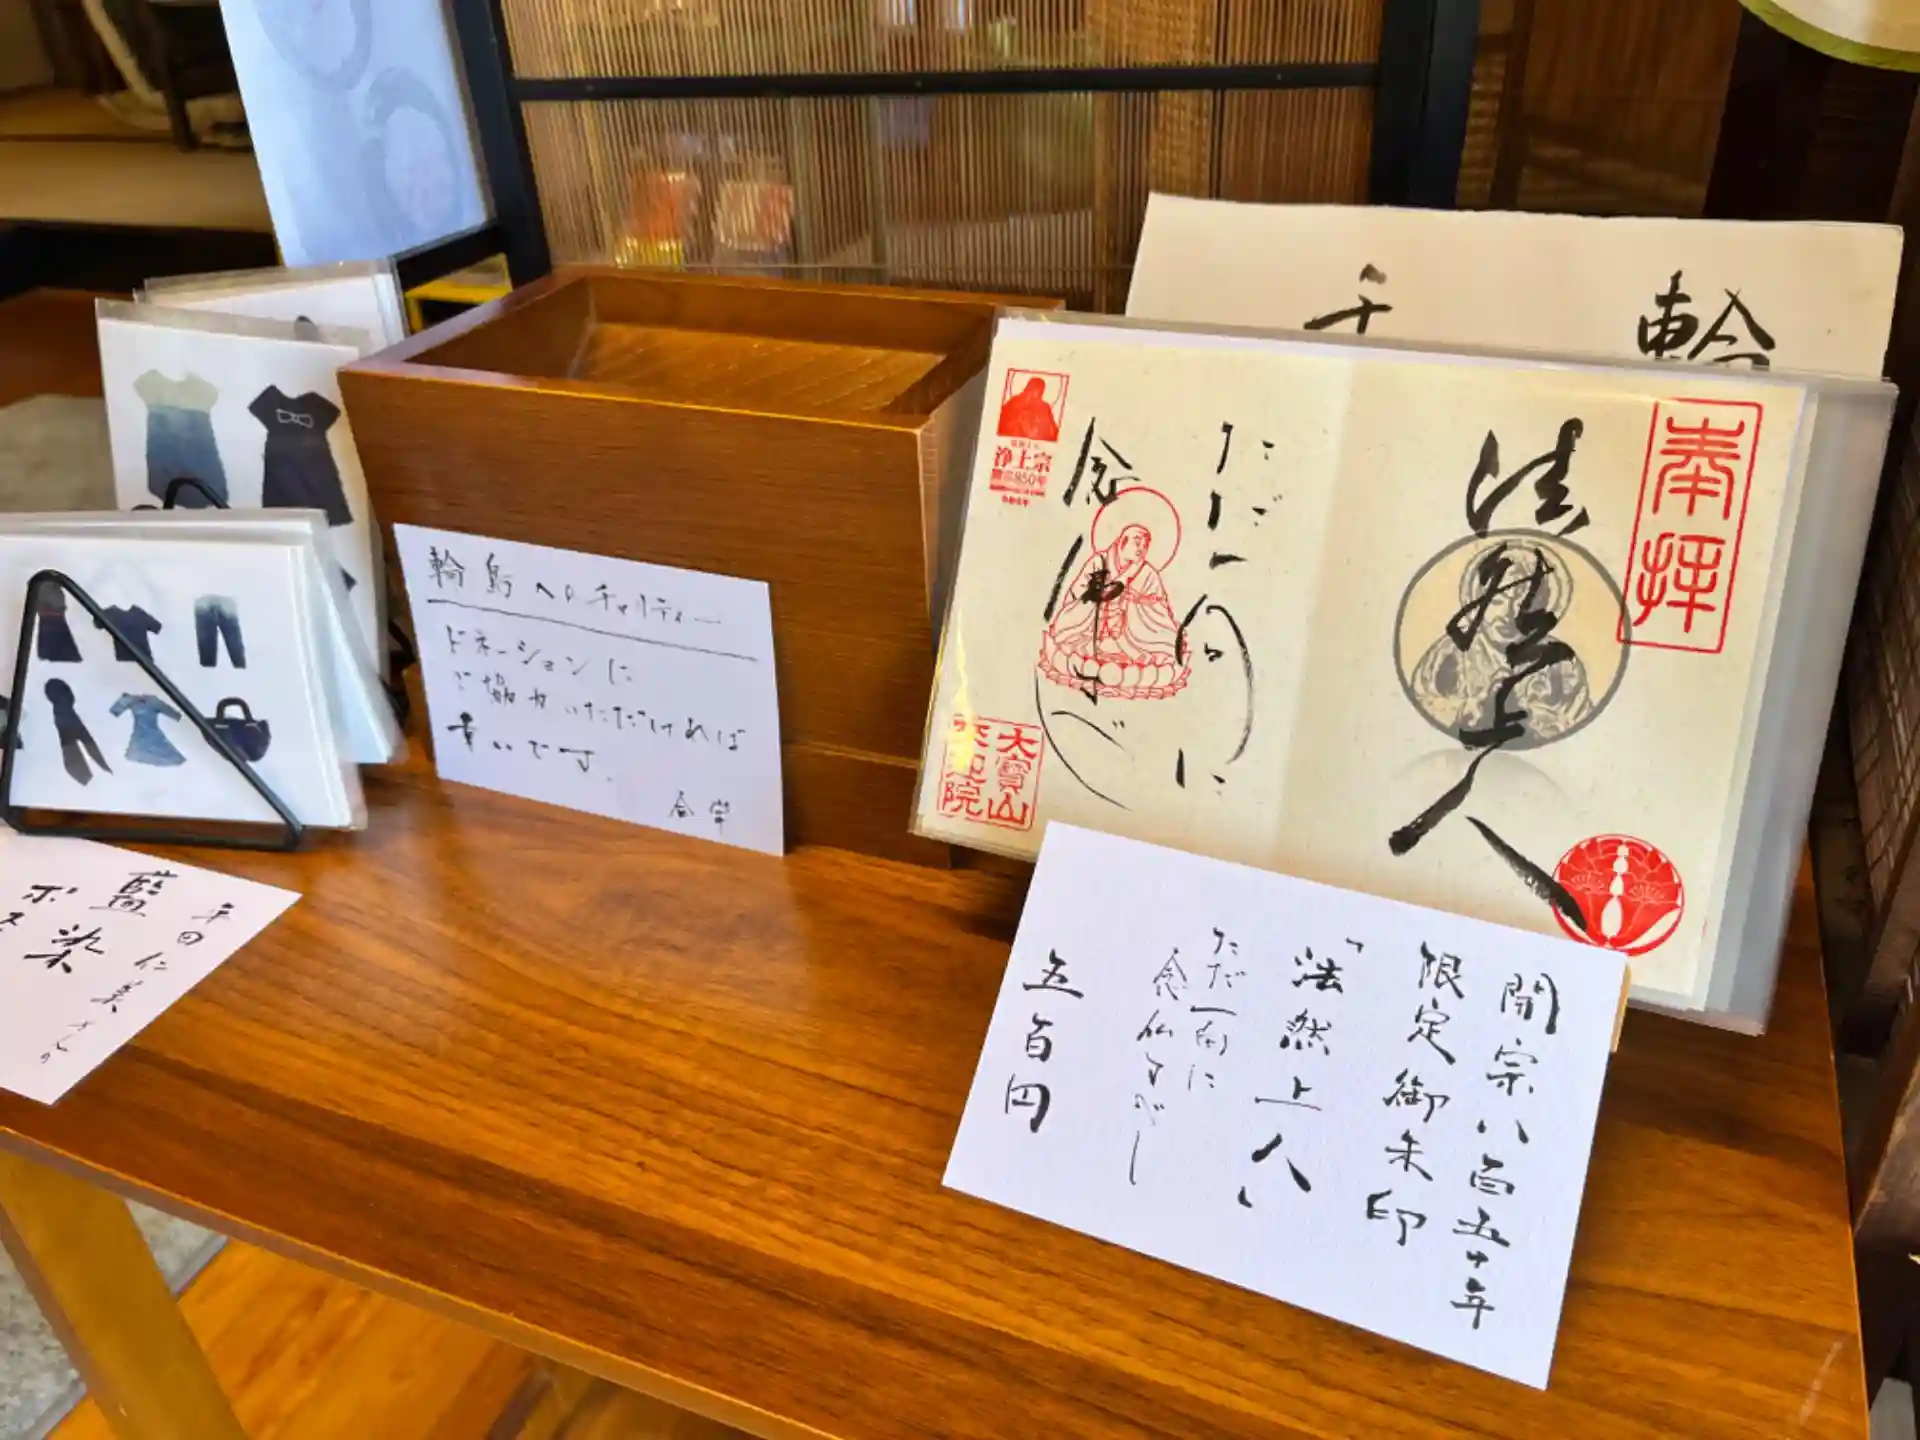 輪
千
奉拝
法然上人
ただ一向に
念佛すべし
浄土宗
開宗850年
大寶山
輪島へのチャリティー
ドネーションに
ご協力いただければ
幸いです。
開宗八百五十年
限定御朱印
「法然上人」
ただ一向に
念仏すべし
五百円
平田仁美さんの
藍染
ポス